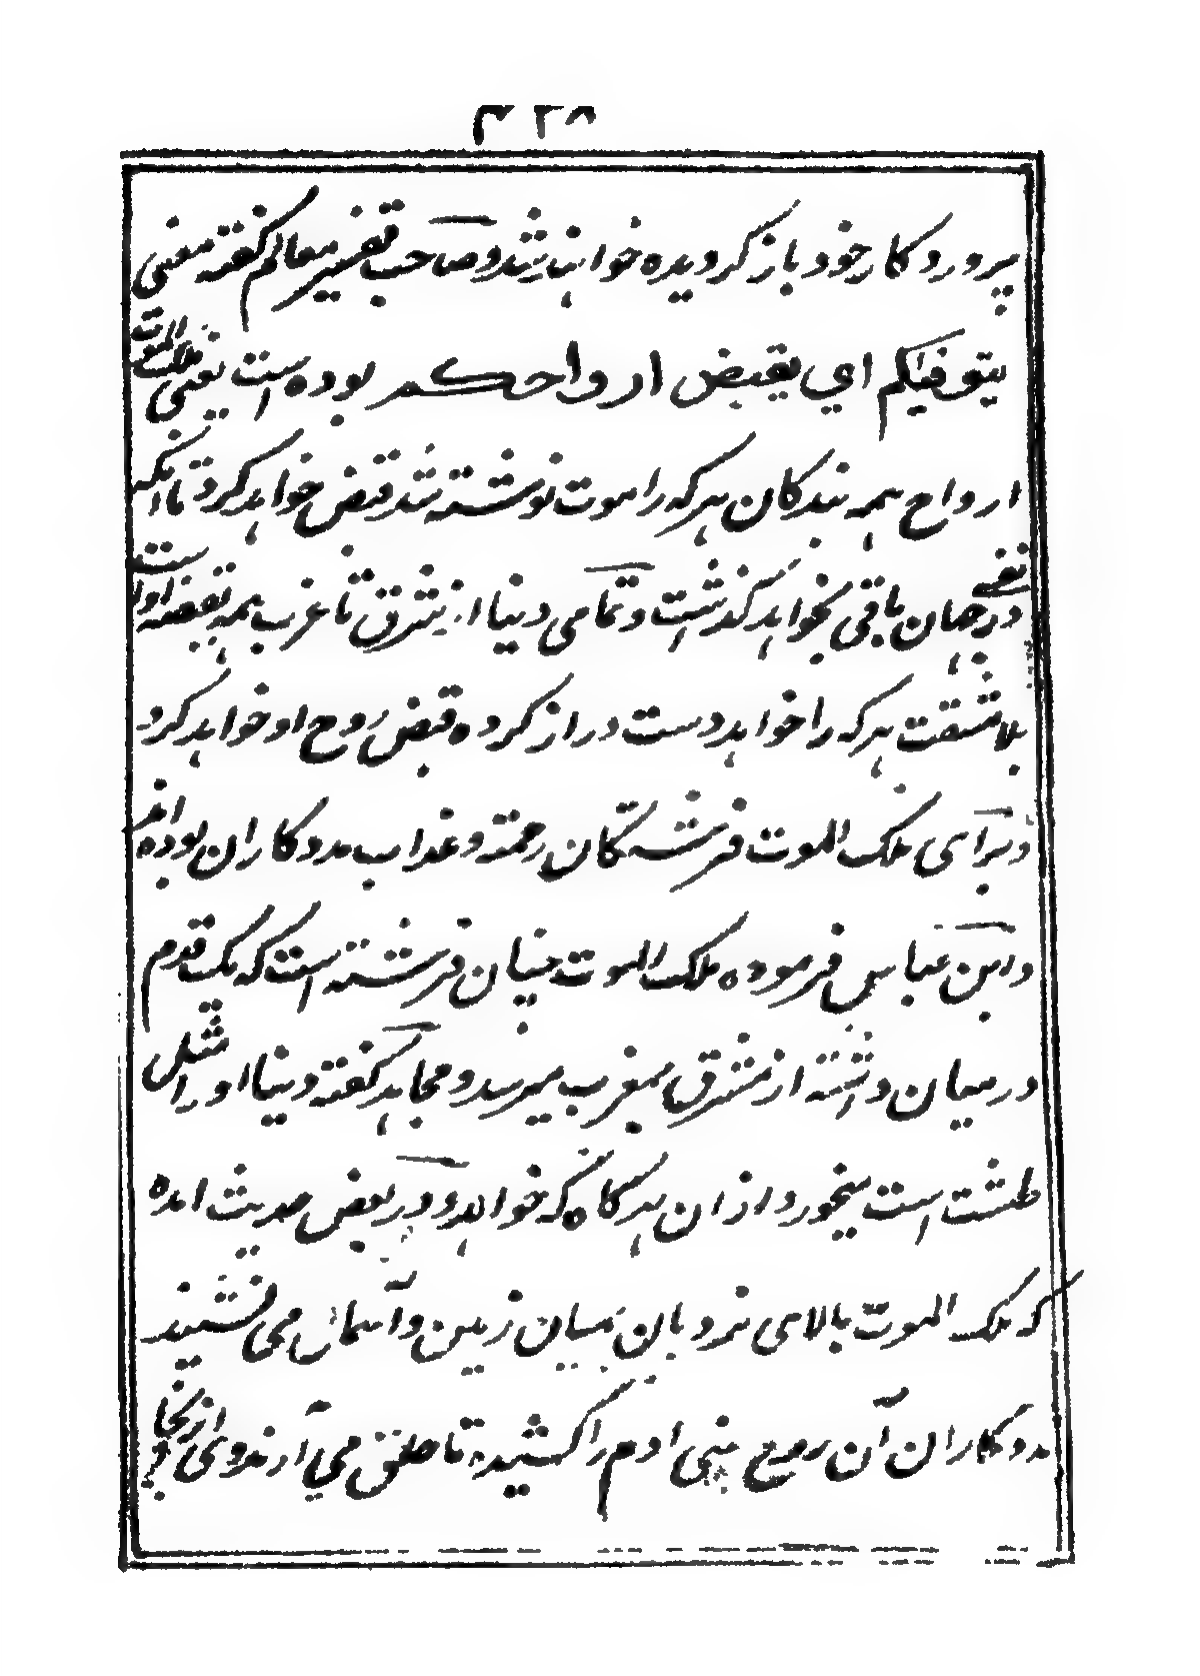 پروردکار خود باز کردیده خواهند شد و صاحب تفسیر معالم کفته معنی
یتوفیکم ای یقبض ارواحکم بوده است یعنی ملک الموت
ارواح همه بندکان هرکه را موت نوشته شد قبض خواهد کرد تا انکه
نفسے در جهان باقی نخواهد کذشت و تمامی دنیا از شرق تا غرب همه بقبضه او است
بلا مشقت هرکه را خواهد دست دراز کرده قبض روح او خواهد کرد
و برای ملک الموت فرشتکان رحمته و عذاب مددکاران بوده اند
و ابن عباس فرموده ملک الموت چنان فرشته است که یک قدم
درمیان داشته از مشرق بمغرب میرسد و مجاهد کفته دنیا او را مثل
طشت است میخورد از ان هر کاه که خواهد و در بعض حدیث امده
که ملک الموت بالای نردبان میان زمین و آسمان می نشیند
مددکاران آن روح بنی ادم را کشیده تا حلق می آرند وی از انجا